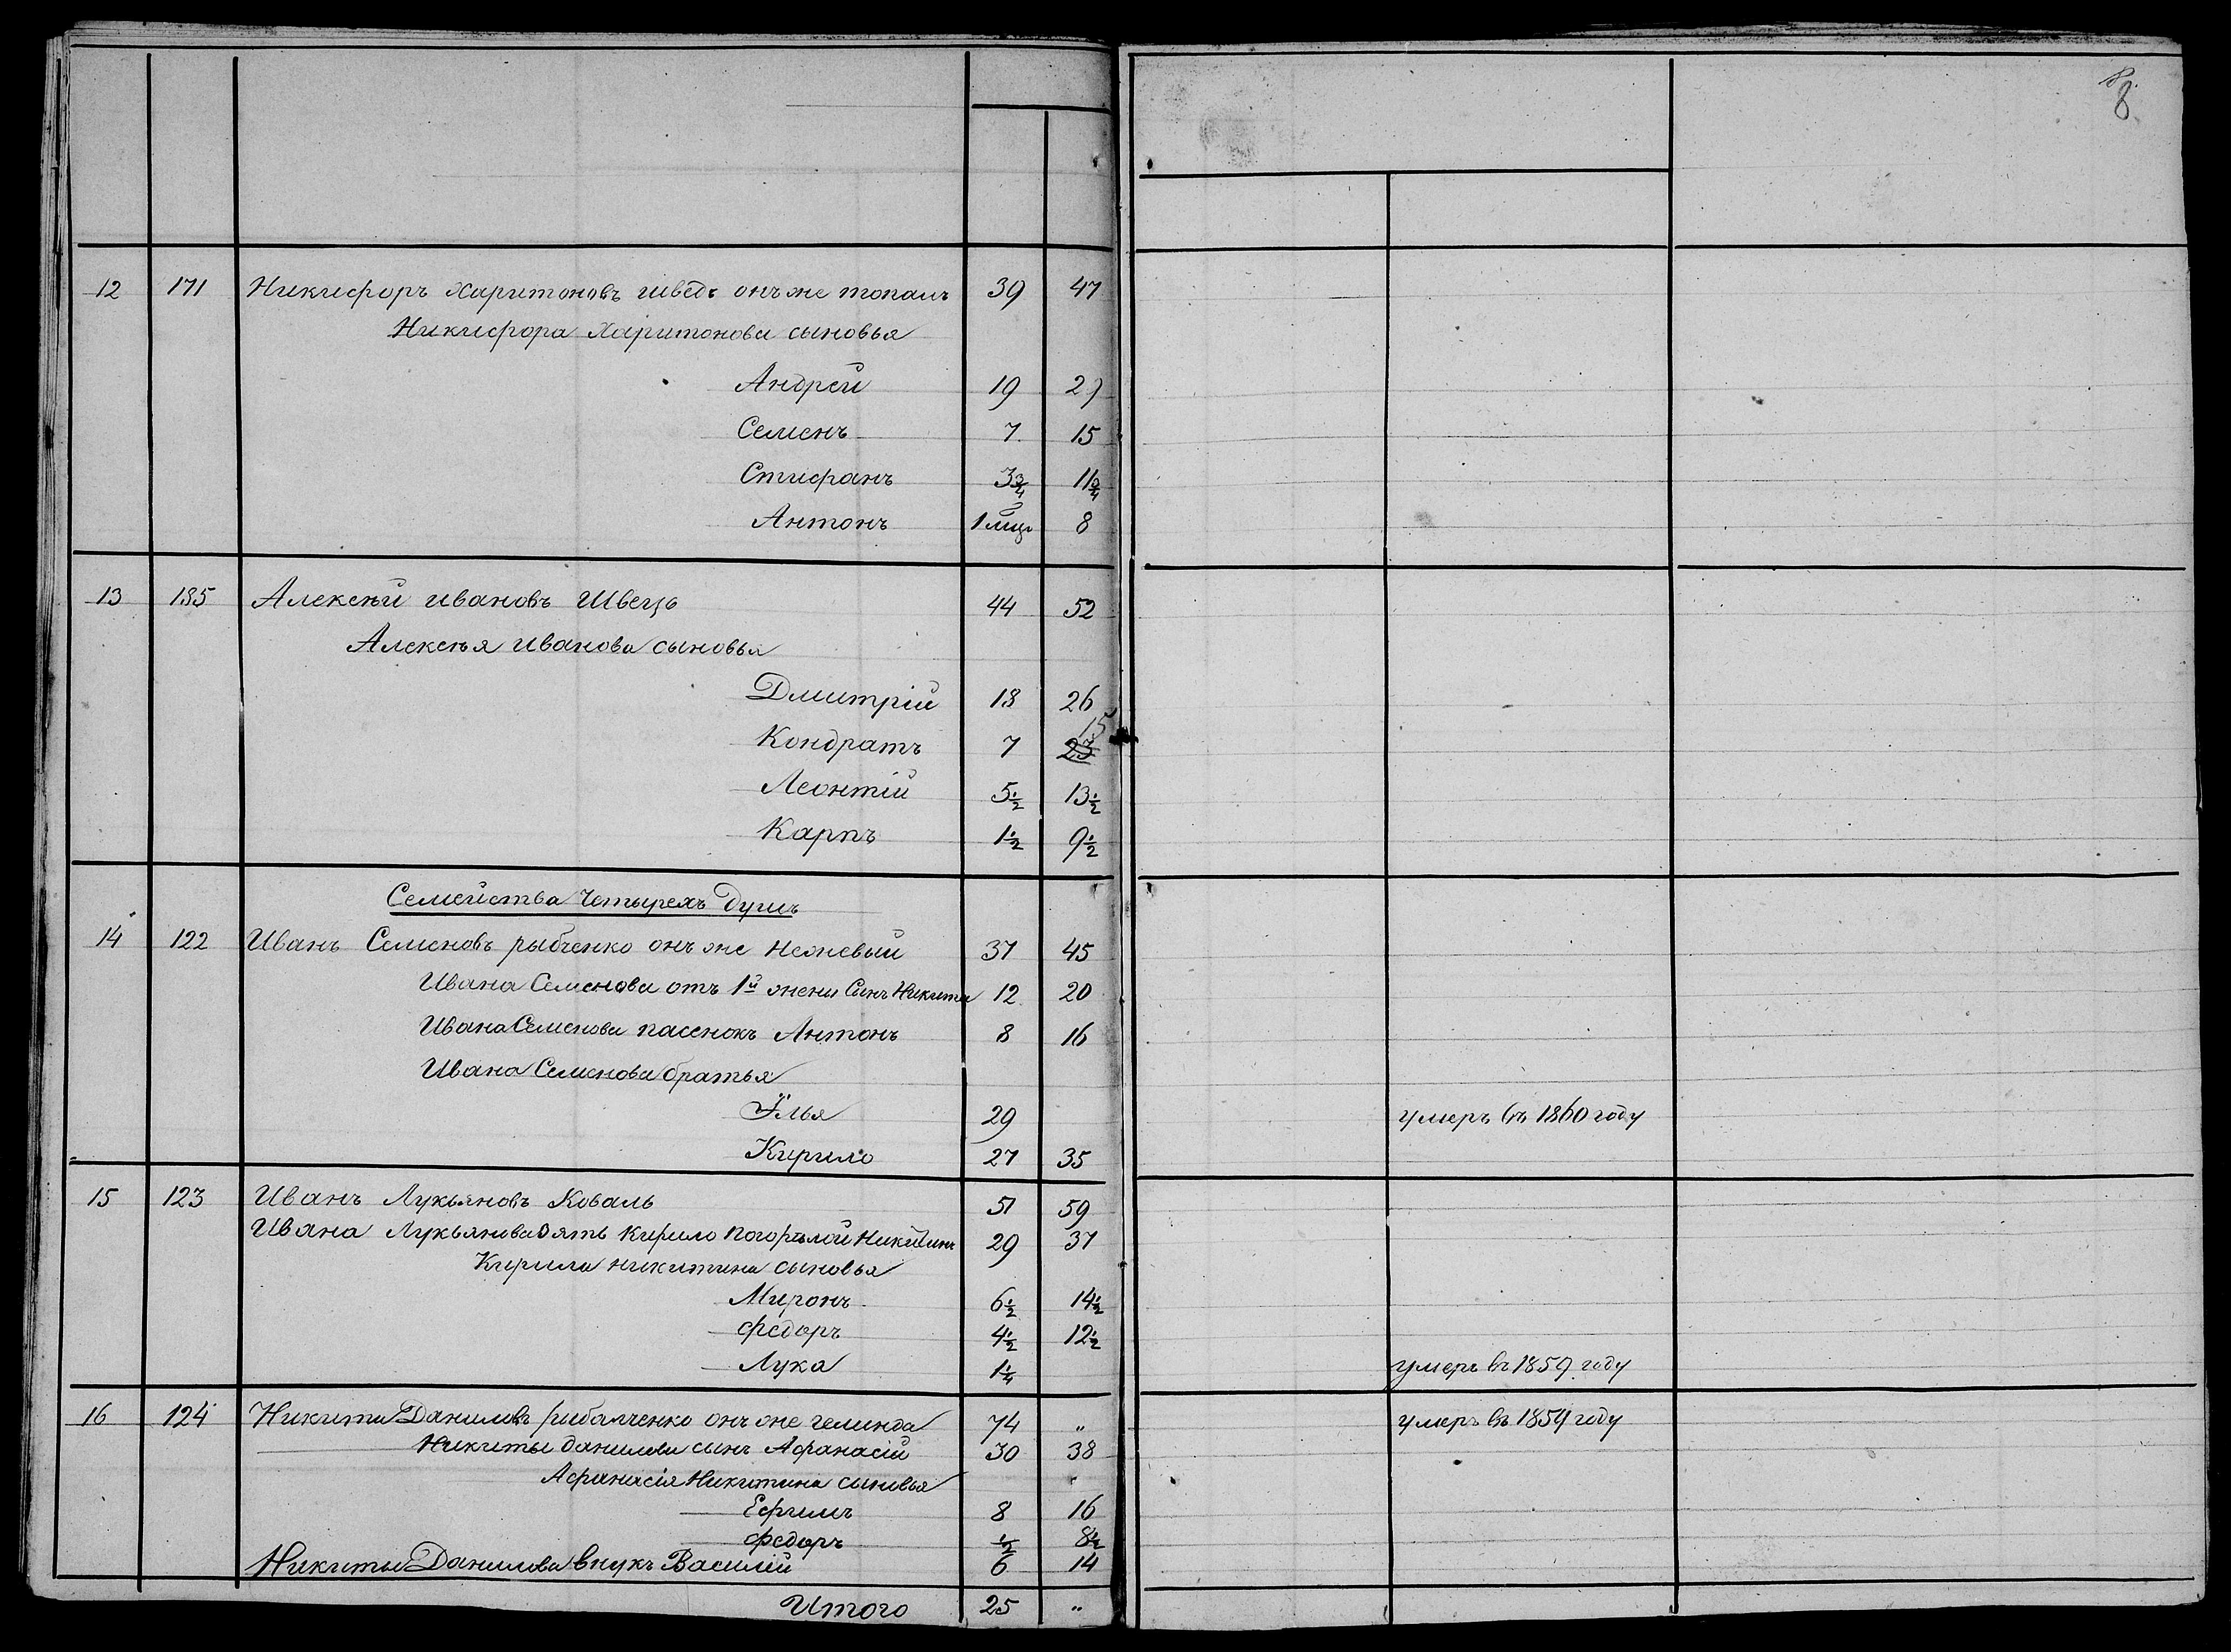 8
12 171 Никифоръ Харитоновъ шведъ онъ же топаль 39 47
Никифора Харитонова сыновья
Андрей 19 27
Семенъ 7 15
Стифанъ 3¾ 11¾
Антонъ 1 мцъ 8
13 135 Алексѣй ивановъ Швець 44 52
Алексѣя иванова сыновья
Дмитрій 18 26
15
Кондратъ 7 23
Леонтій 5½ 13½
Карпъ 1½ 9½
Семейства Четырехъ душъ
14 122 Иванъ Семеновъ рыбченко онъ же нежевый 37 45
Ивана Семенова отъ 1й жены Сынъ Никита 12 20
Ивана Семенова пасенокъ Антонъ 8 16
Ивана Семенова братья
Илья 29 умеръ въ 1860 году
Кирило 27 35
15 123 Иванъ Лукьяновъ Коваль 51 59
Ивана Лукьянова зять Кирило Погорѣлой Никитинъ 29 37
Кирила никитина сыновья
Миронъ 6½ 14½
федоръ 4½ 12½
Лука 1¼ умеръ въ 1859 году
16 124 Никита Даниловъ рибалченко онъ же челинда 74 " умеръ въ 1859 году
Никиты данилова сынъ Афанасій 30 38
Афанасія Никитина сыновья
Ефимъ 8 16
федоръ ½ 8½
Никиты Данилова внукъ Василий 6 14
Итого 25 "